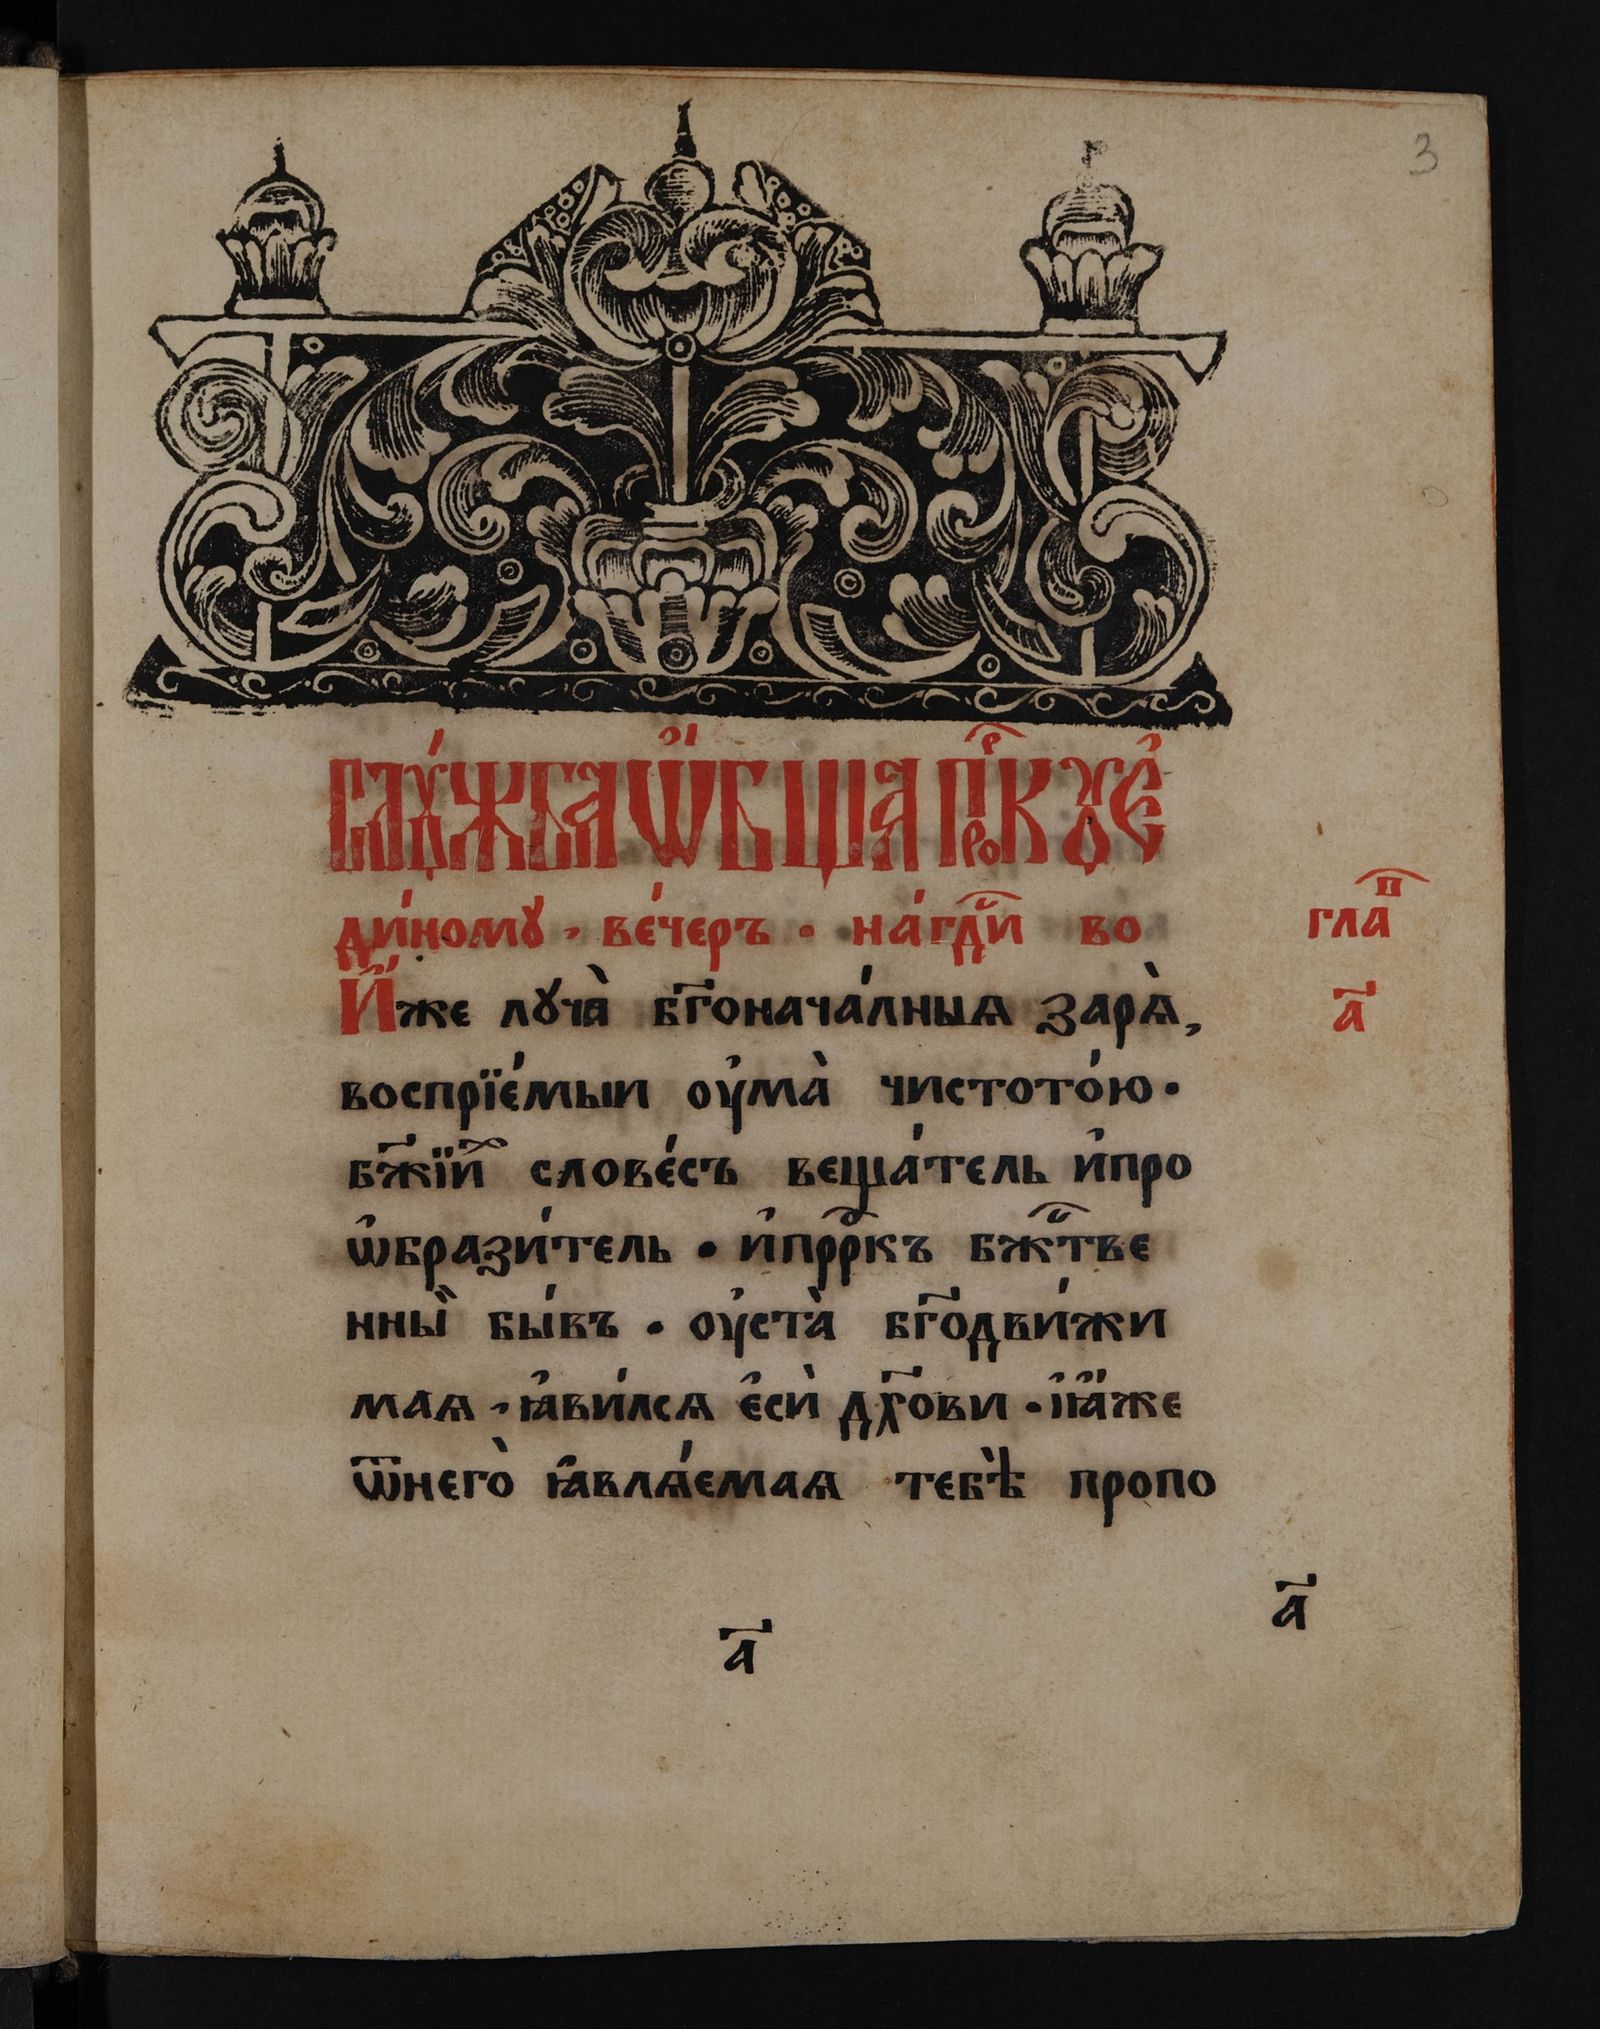 3
Слꙋ́жба ѡ҆́бщаѧ прⷪ҇ркꙋ є҆
ди́номꙋ · ве́черъ · на́ гдⷭ҇и во
глаⷡ҇
И҆́же лꙋчѧ̀ бг҃онача́лныѧ зарѧ̀,
а҃
воспрїе́мыи оу҆ма̀ чистото́ю ·
бж҃їиⷯ слове́съ веща́тель и҆про
ѡ҆брази́тель · и҆прⷪ҇ркъ бжⷭ҇тве
нны̏ бы́въ · оу҆ста̀ бг҃одви́жи
маѧ · ꙗ҆ви́лсѧ є҆сѝ дх҃ови · ꙗ҆́же
ѿнегѡ̀ ꙗ҆влѧ́емаѧ тебѣ̀ пропо
а҃
а҃